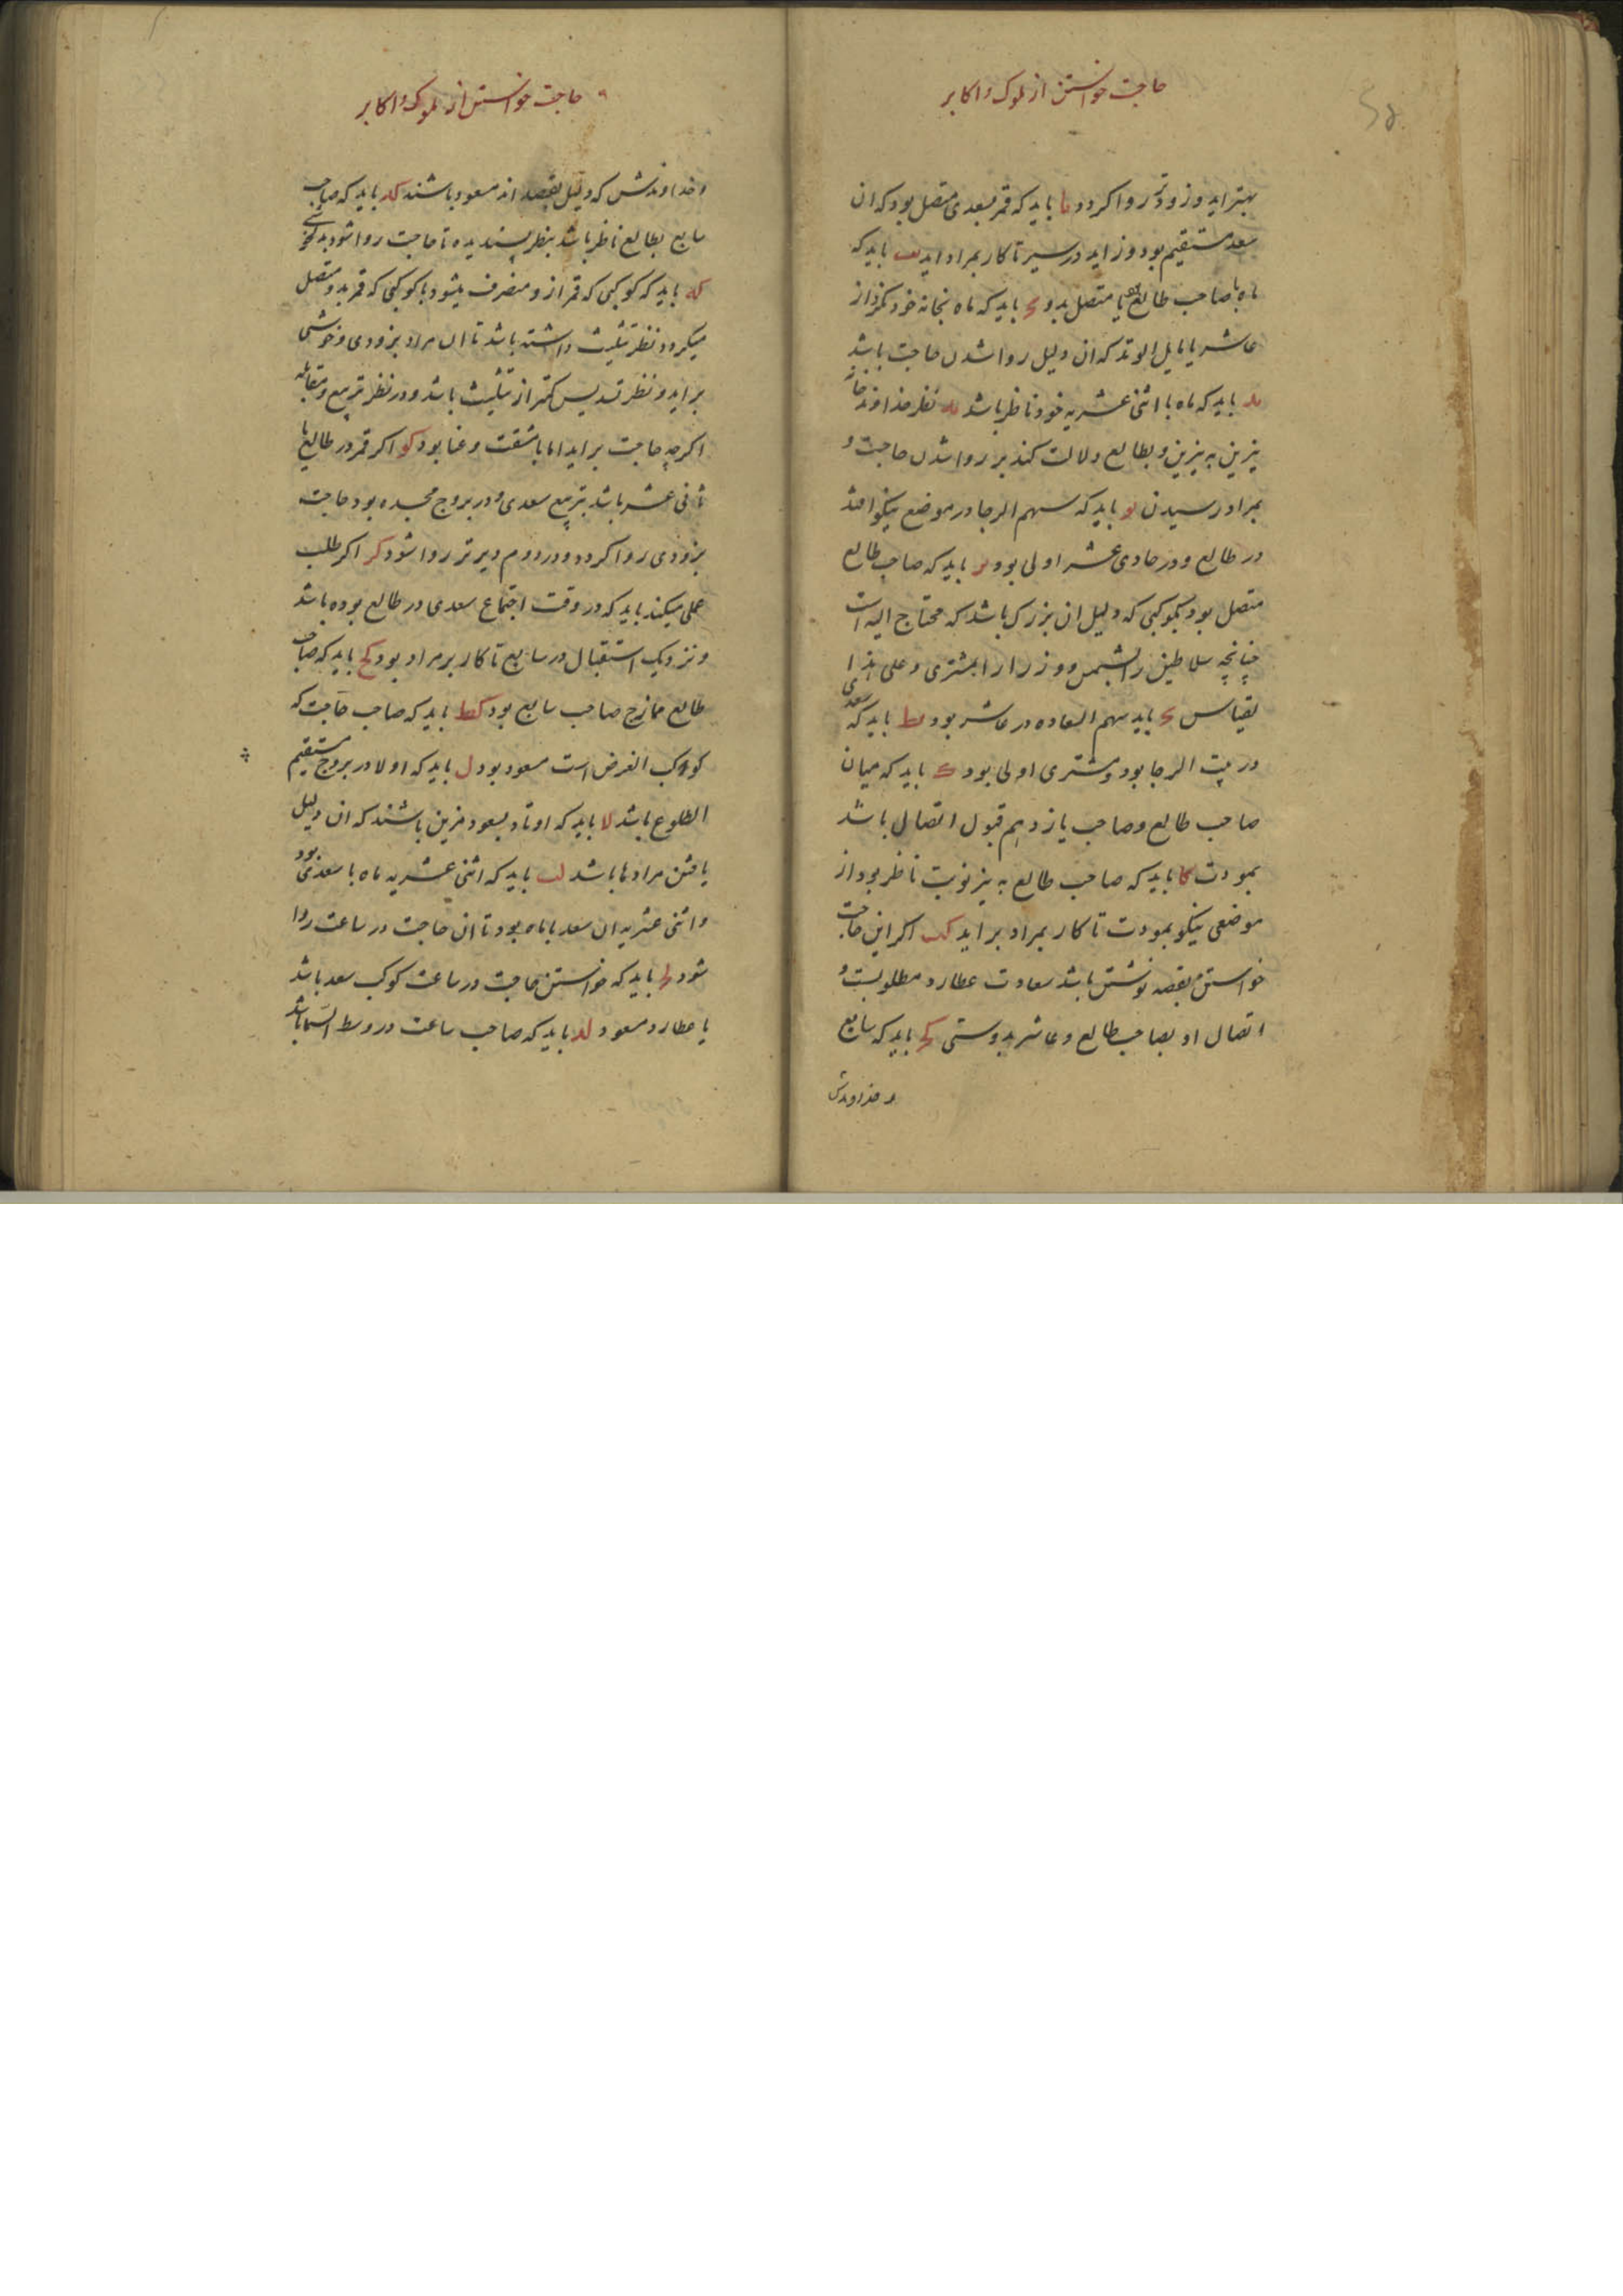 حاجت خواستن از ملوک و اکابر
بهتر اید و زودتر روا کردد یا باید که قمر بسعدی متصل بود که ان
سعد مستقیم بود و زاید در سیر تا کار بمراد اید یب باید که
ماه با صاحب طالع یا متصل بدو یج باید که ماه بخانه خود نکرد از
عاشر یا مایل الوتد که ان دلیل روا شدن حاجت باشد
ید باید که ماه با اثنی عشریه خود ناظر باشد یه نظر خداوند خانه
نیرین به نیرین و بطالع دلالت کند بر روا شدن حاجت و
بمراد رسیدن یو باید که سهم الرجا در موضع نیکو افتد
در طالع و در حادی عشر اولی بود یز باید که صاحب طالع
متصل بود بکوکبی که دلیل ان بزرک باشد که محتاج الیه است
چنانچه سلاطین را بشمس و وزرا را بمشتری و علی هذا
لقیاس یح باید سهم السعاده در عاشر بود یط باید که سعدی
در بیت الرجا بود و مشتری اولی بود ک باید که میان
صاحب طالع و صاحب یازدهم قبول اتصال باشد
بمودت کا باید که صاحب طالع به نیر نوبت ناظر بود از
موضعی نیکو بمودت تا کار بمراد بر اید کب اکر این حاجت
خواستن بقصه نوشتن باشد سعادت عطارد مطلوبست و
اتصال او بصاحب طالع و عاشر بدوستی کج باید که سابع
و خداوندش
حاجت خواستن از ملوک و اکابر
و خداوندش که دلیل بقصه اند مسعود باشند کد باید که صاحب
سابع بطالع ناظر باشد بنظر پسندیده تا حاجت روا شود
که باید که کوکبی که قمر از و منصرف میشود با کوکبی که قمر بدو متصل
میکردد نظر تثلیث داشته باشد تا ان مراد بزودی و خوشی
بر اید و نظر تسدیس کمتر از تثلیث باشد و در نظر تربیع و مقابله
اکرچه حاجت بر اید اما با مشقت و عنا بود کو اکر قمر در طالع یا
ثانی عشر باشد بتربیع سعدی و در بروج مجسده بود حاجت
بزودی روا کردد و در دوم دیرتر روا شود کز اکر طلب
عملی میکند باید که در وقت اجتماع سعدی در طالع بوده باشد
و نزدیک استقبال در سابع تا کار بر مراد بود کح باید که صاحب
طالع ممازج صاحب سابع بود کط باید که صاحب حاجت که
کوکب الغرض است مسعود بود ل باید که اولا در بروج مستقیم
الطلوع باشد لا باید که اوتاد بسعود مزین باشند که ان دلیل
یافتن مرادها باشد لب باید که اثنی عشریه ماه با سعدی بود
و اثنی عشریه ان سعد با ماه بود تا ان حاجت در ساعت روا
شود لج باید که خواستن حاجت در ساعت کوکب سعد باشد
یا عطارد مسعود لد باید که صاحب ساعت در وسط السما باشد